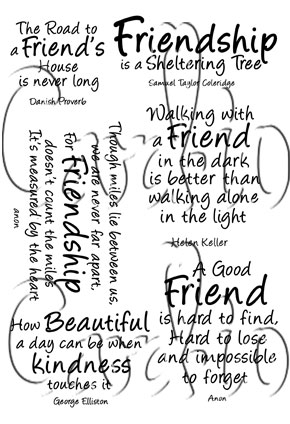 The Road to
a Friend's
House
is never long
Danish Proverb
Friendship
is a Sheltering Tree
Samuel Taylor Coleridge
Walking with
a Friend
in the dark
is better than
walking alone
in the light
Helen Keller
Though miles lie between us,
we are never far apart,
For Friendship
doesn't count the miles
It's measured by the heart
anon
A Good
Friend
is hard to find,
Hard to lose
and impossible
to forget
Anon
How Beautiful
a day can be when
kindness
touches it
George Elliston